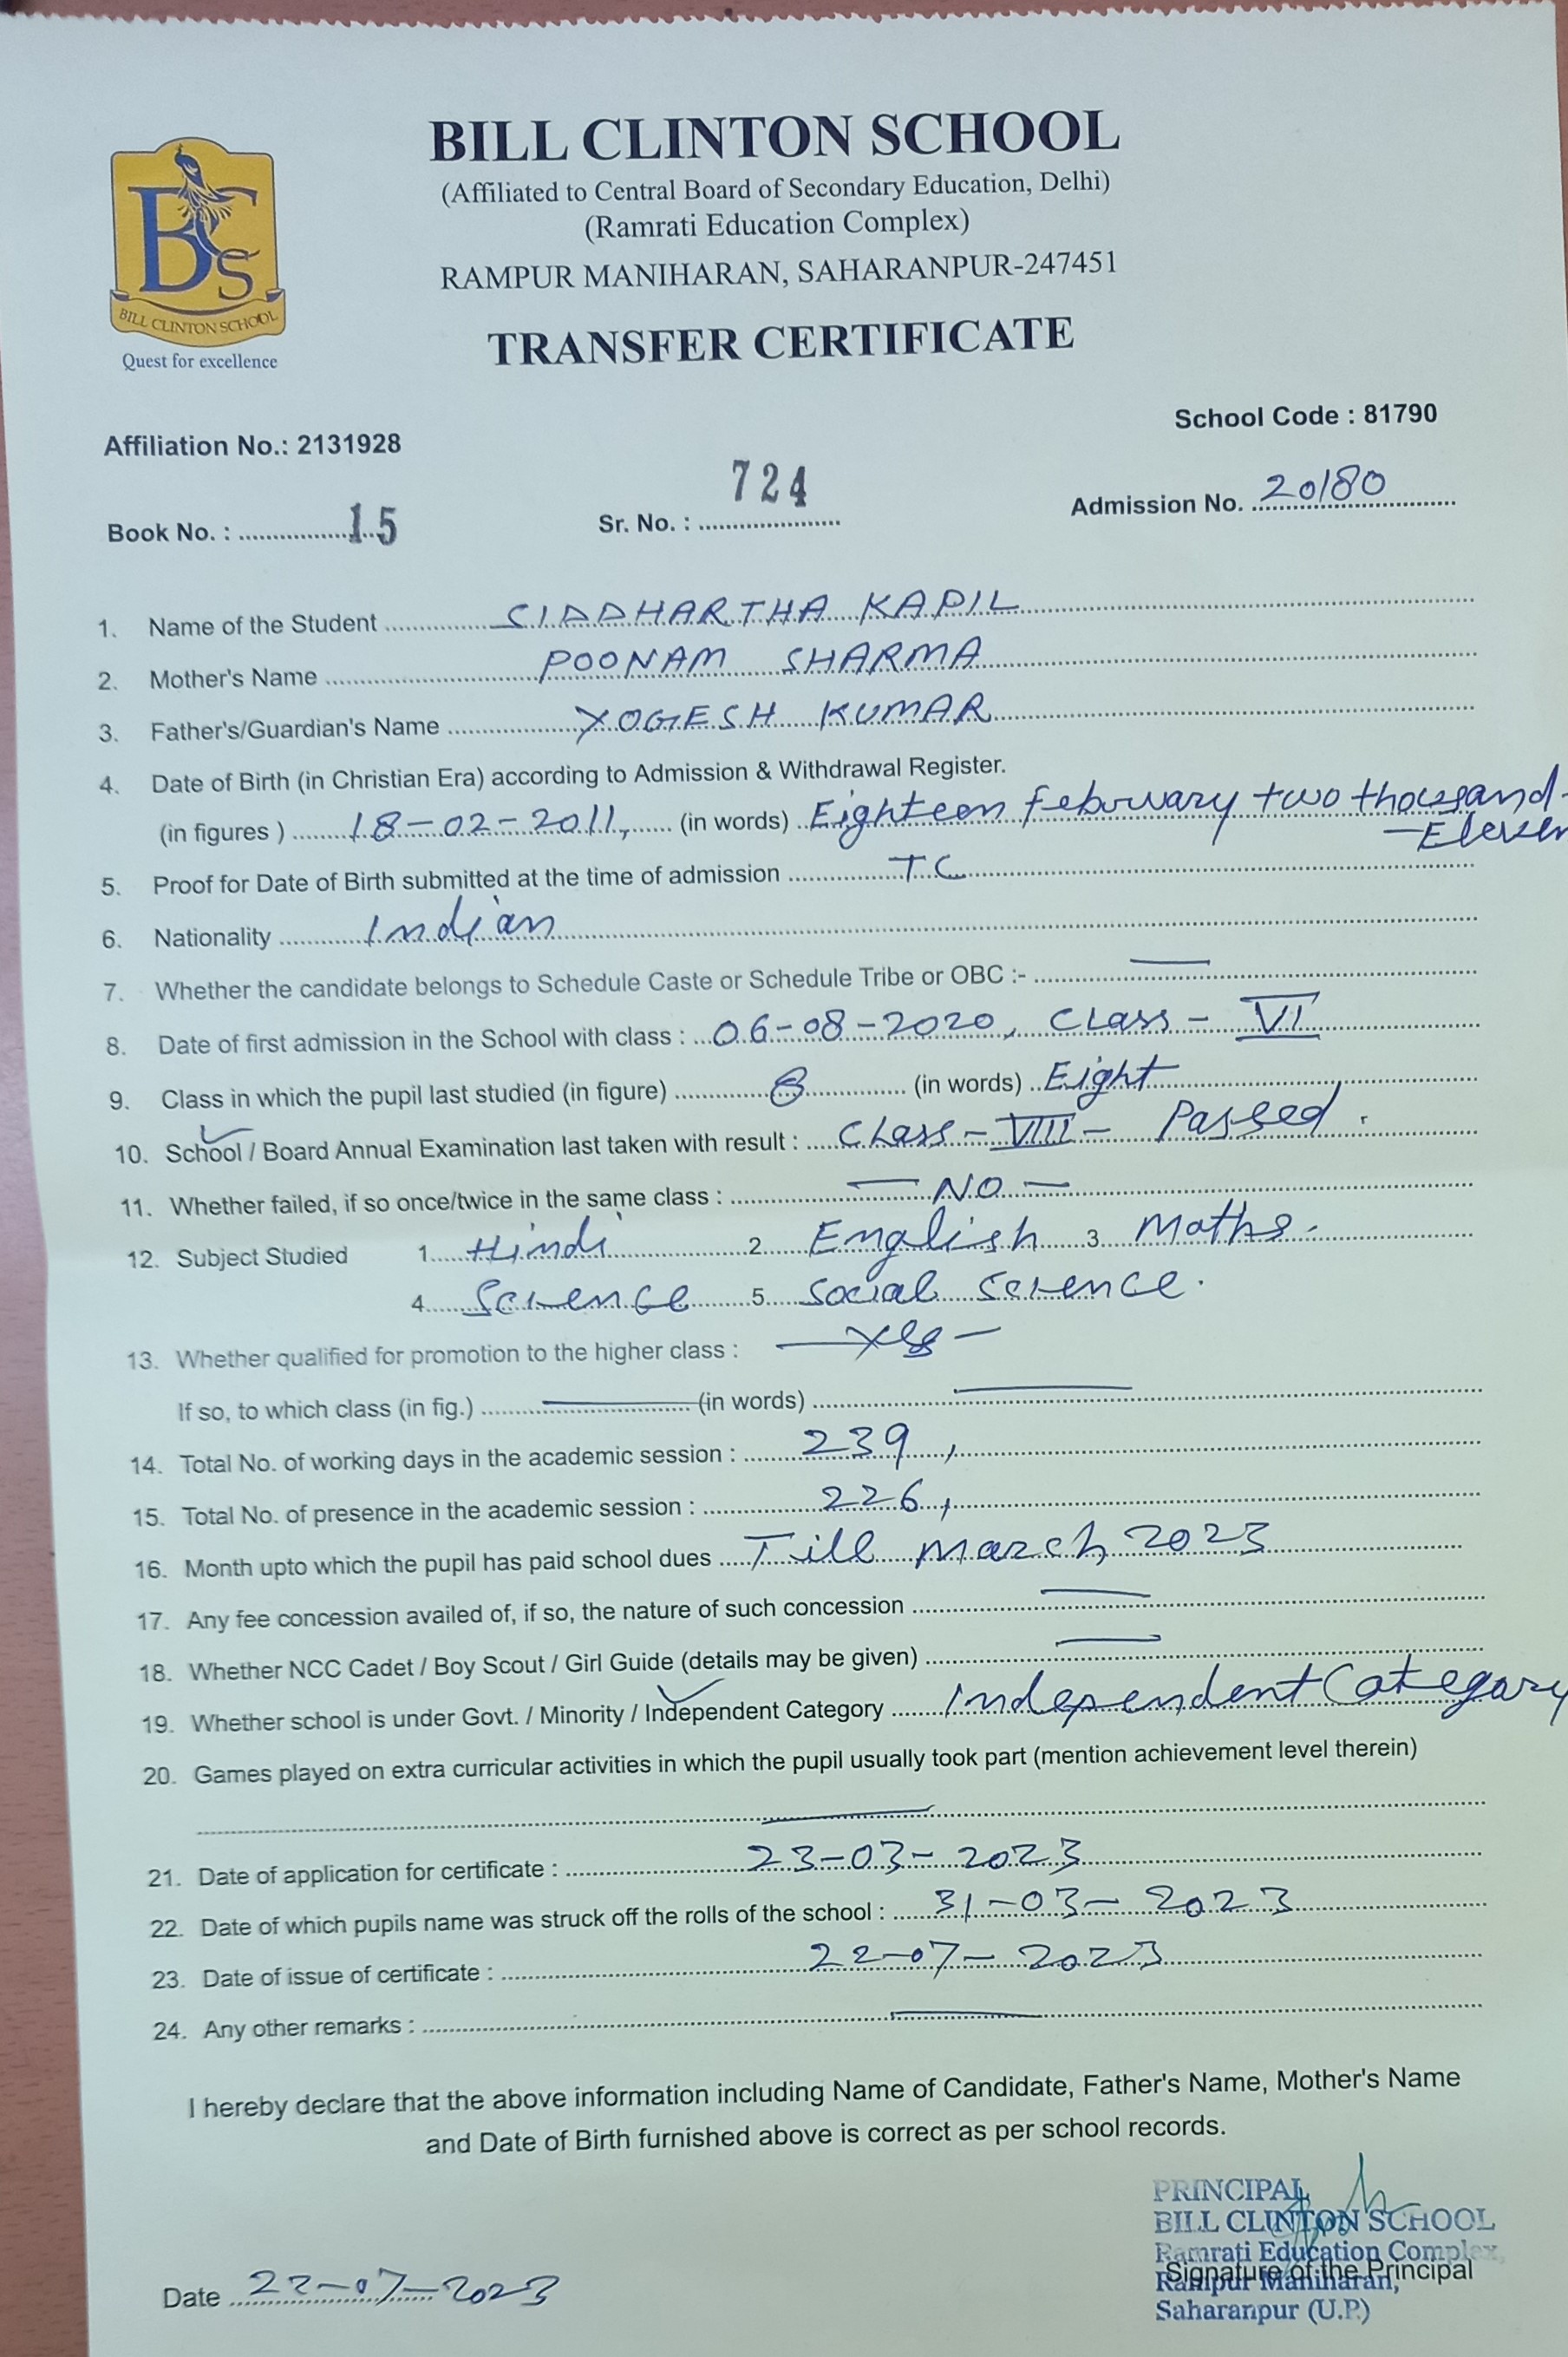 BILL CLINTON SCHOOL
(Affiliated to Central Board of Secondary Education, Delhi)
(Ramrati Education Complex)
RAMPUR MANIHARAN, SAHARANPUR-247451
BCS
BILL CLINTON SCHOOL
Quest for excellence
TRANSFER CERTIFICATE
School Code : 81790
Affiliation No.: 2131928
Book No. : 15 Sr. No. : 724 Admission No. 20180
1. Name of the Student SIDDHARTHA KAPIL
2. Mother's Name POONAM SHARMA
3. Father's/Guardian's Name YOGESH KUMAR
4. Date of Birth (in Christian Era) according to Admission & Withdrawal Register.
(in figures ) 18-02-2011, (in words) Eighteen february two thousand-
-Eleven
5. Proof for Date of Birth submitted at the time of admission TC
6. Nationality Indian
7. Whether the candidate belongs to Schedule Caste or Schedule Tribe or OBC :- —
8. Date of first admission in the School with class : 06-08-2020, Class - VI
9. Class in which the pupil last studied (in figure) 8 (in words) Eight
10. School / Board Annual Examination last taken with result : Class - VIII - Passed.
11. Whether failed, if so once/twice in the same class : — NO —
12. Subject Studied 1. Hindi 2. English 3. Maths.
4. Science 5. Social Science.
13. Whether qualified for promotion to the higher class : — Yes —
If so, to which class (in fig.) — (in words) —
14. Total No. of working days in the academic session : 239,
15. Total No. of presence in the academic session : 226,
16. Month upto which the pupil has paid school dues Till March 2023
17. Any fee concession availed of, if so, the nature of such concession —
18. Whether NCC Cadet / Boy Scout / Girl Guide (details may be given) —
19. Whether school is under Govt. / Minority / Independent Category Independent Category
20. Games played on extra curricular activities in which the pupil usually took part (mention achievement level therein)
—
21. Date of application for certificate : 23-03-2023
22. Date of which pupils name was struck off the rolls of the school : 31-03-2023
23. Date of issue of certificate : 22-07-2023
24. Any other remarks : —
I hereby declare that the above information including Name of Candidate, Father's Name, Mother's Name
and Date of Birth furnished above is correct as per school records.
PRINCIPAL
BILL CLINTON SCHOOL
Ramrati Education Complex,
Signature of the Principal
Rampur Maniharan,
Saharanpur (U.P.)
Date 22-07-2023